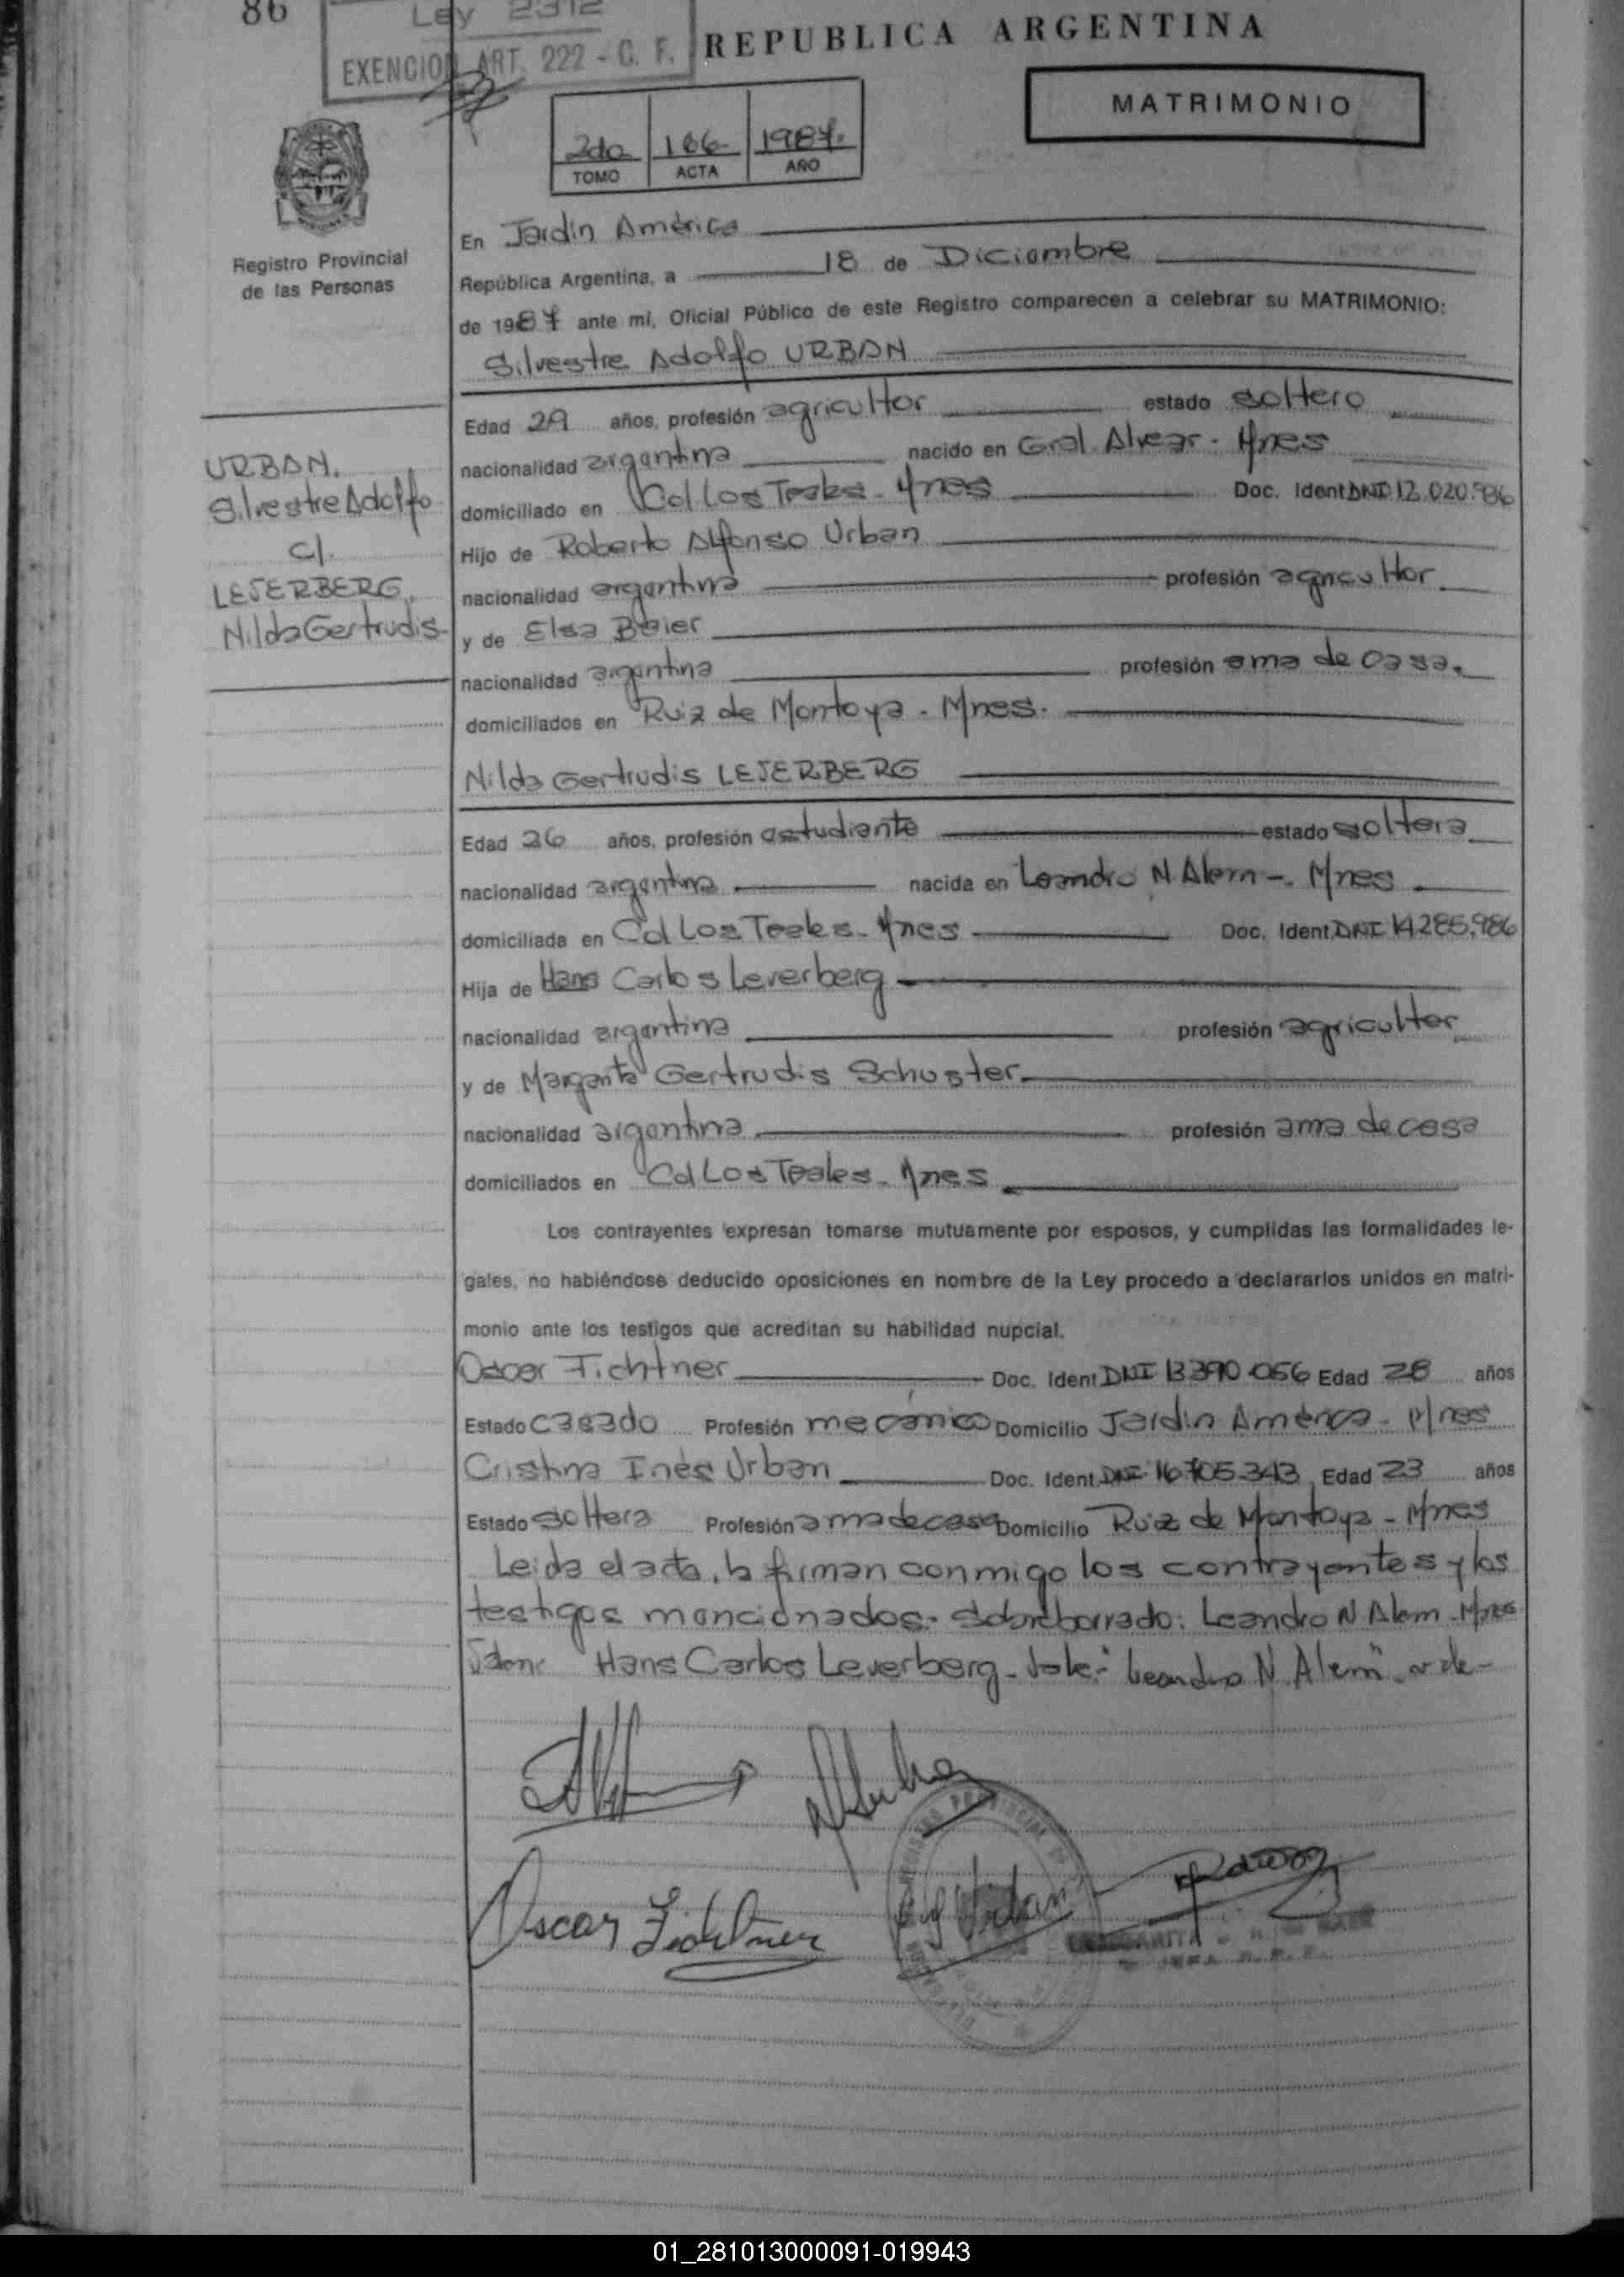 86
Ley 2312
EXENCION ART. 222 - C. F.
REPUBLICA ARGENTINA
MATRIMONIO
2do 166 1987.
TOMO ACTA AÑO
Registro Provincial
de las Personas
En Jardín América
República Argentina, a 18 de Diciembre
de 1987 ante mí, Oficial Público de este Registro comparecen a celebrar su MATRIMONIO:
Silvestre Adolfo URBAN
URBAN.
Silvestre Adolfo
c/.
LEJERBERG,
Nilda Gertrudis-
Edad 29 años, profesión agricultor estado soltero
nacionalidad argentina nacido en Gral. Alvear - Mnes
domiciliado en Col Los Teales - Mnes Doc. Ident DNI 12.020.936
Hijo de Roberto Alfonso Urban
nacionalidad argentina profesión agricultor
y de Elsa Beier
nacionalidad argentina profesión ama de casa.
domiciliados en Ruiz de Montoya - Mnes.
Nilda Gertrudis LEJERBERG
Edad 26 años, profesión estudiante estado soltera
nacionalidad argentina nacida en Leandro N Alem - Mnes
domiciliada en Col Los Teales - Mnes Doc. Ident. DNI 14.285.986
Hija de Hans Carlos Leverberg
nacionalidad argentina profesión agricultor
y de Margarita Gertrudis Schuster
nacionalidad argentina profesión ama de casa
domiciliados en Col Los Teales - Mnes
Los contrayentes expresan tomarse mutuamente por esposos, y cumplidas las formalidades le-
gales, no habiéndose deducido oposiciones en nombre de la Ley procedo a declararlos unidos en matri-
monio ante los testigos que acreditan su habilidad nupcial.
Oscar Fichtner Doc. Ident DNI 13.390.056 Edad 28 años
Estado casado Profesión mecánico Domicilio Jardín América - Mnes
Cristina Inés Urban Doc. Ident. DNI 16.705.343 Edad 23 años
Estado soltera Profesión ama de casa Domicilio Ruiz de Montoya - Mnes
Leida el acta, la firman conmigo los contrayentes y los
testigos mencionados.- Sobreborrado: Leandro N Alem - Mnes
Hans Carlos Leverberg - Vale.- "Leandro N. Alem" vale -
Oscar Fichtner
01_281013000091-019943